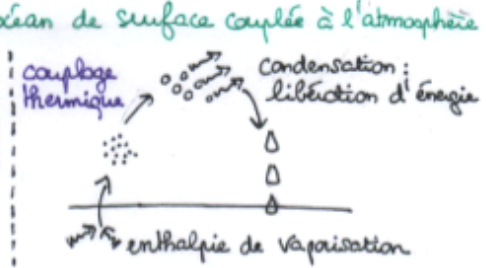 océan de surface couplée à l'atmosphère
couplage
thermique
condensation :
libération d'énergie
enthalpie de vaporisation